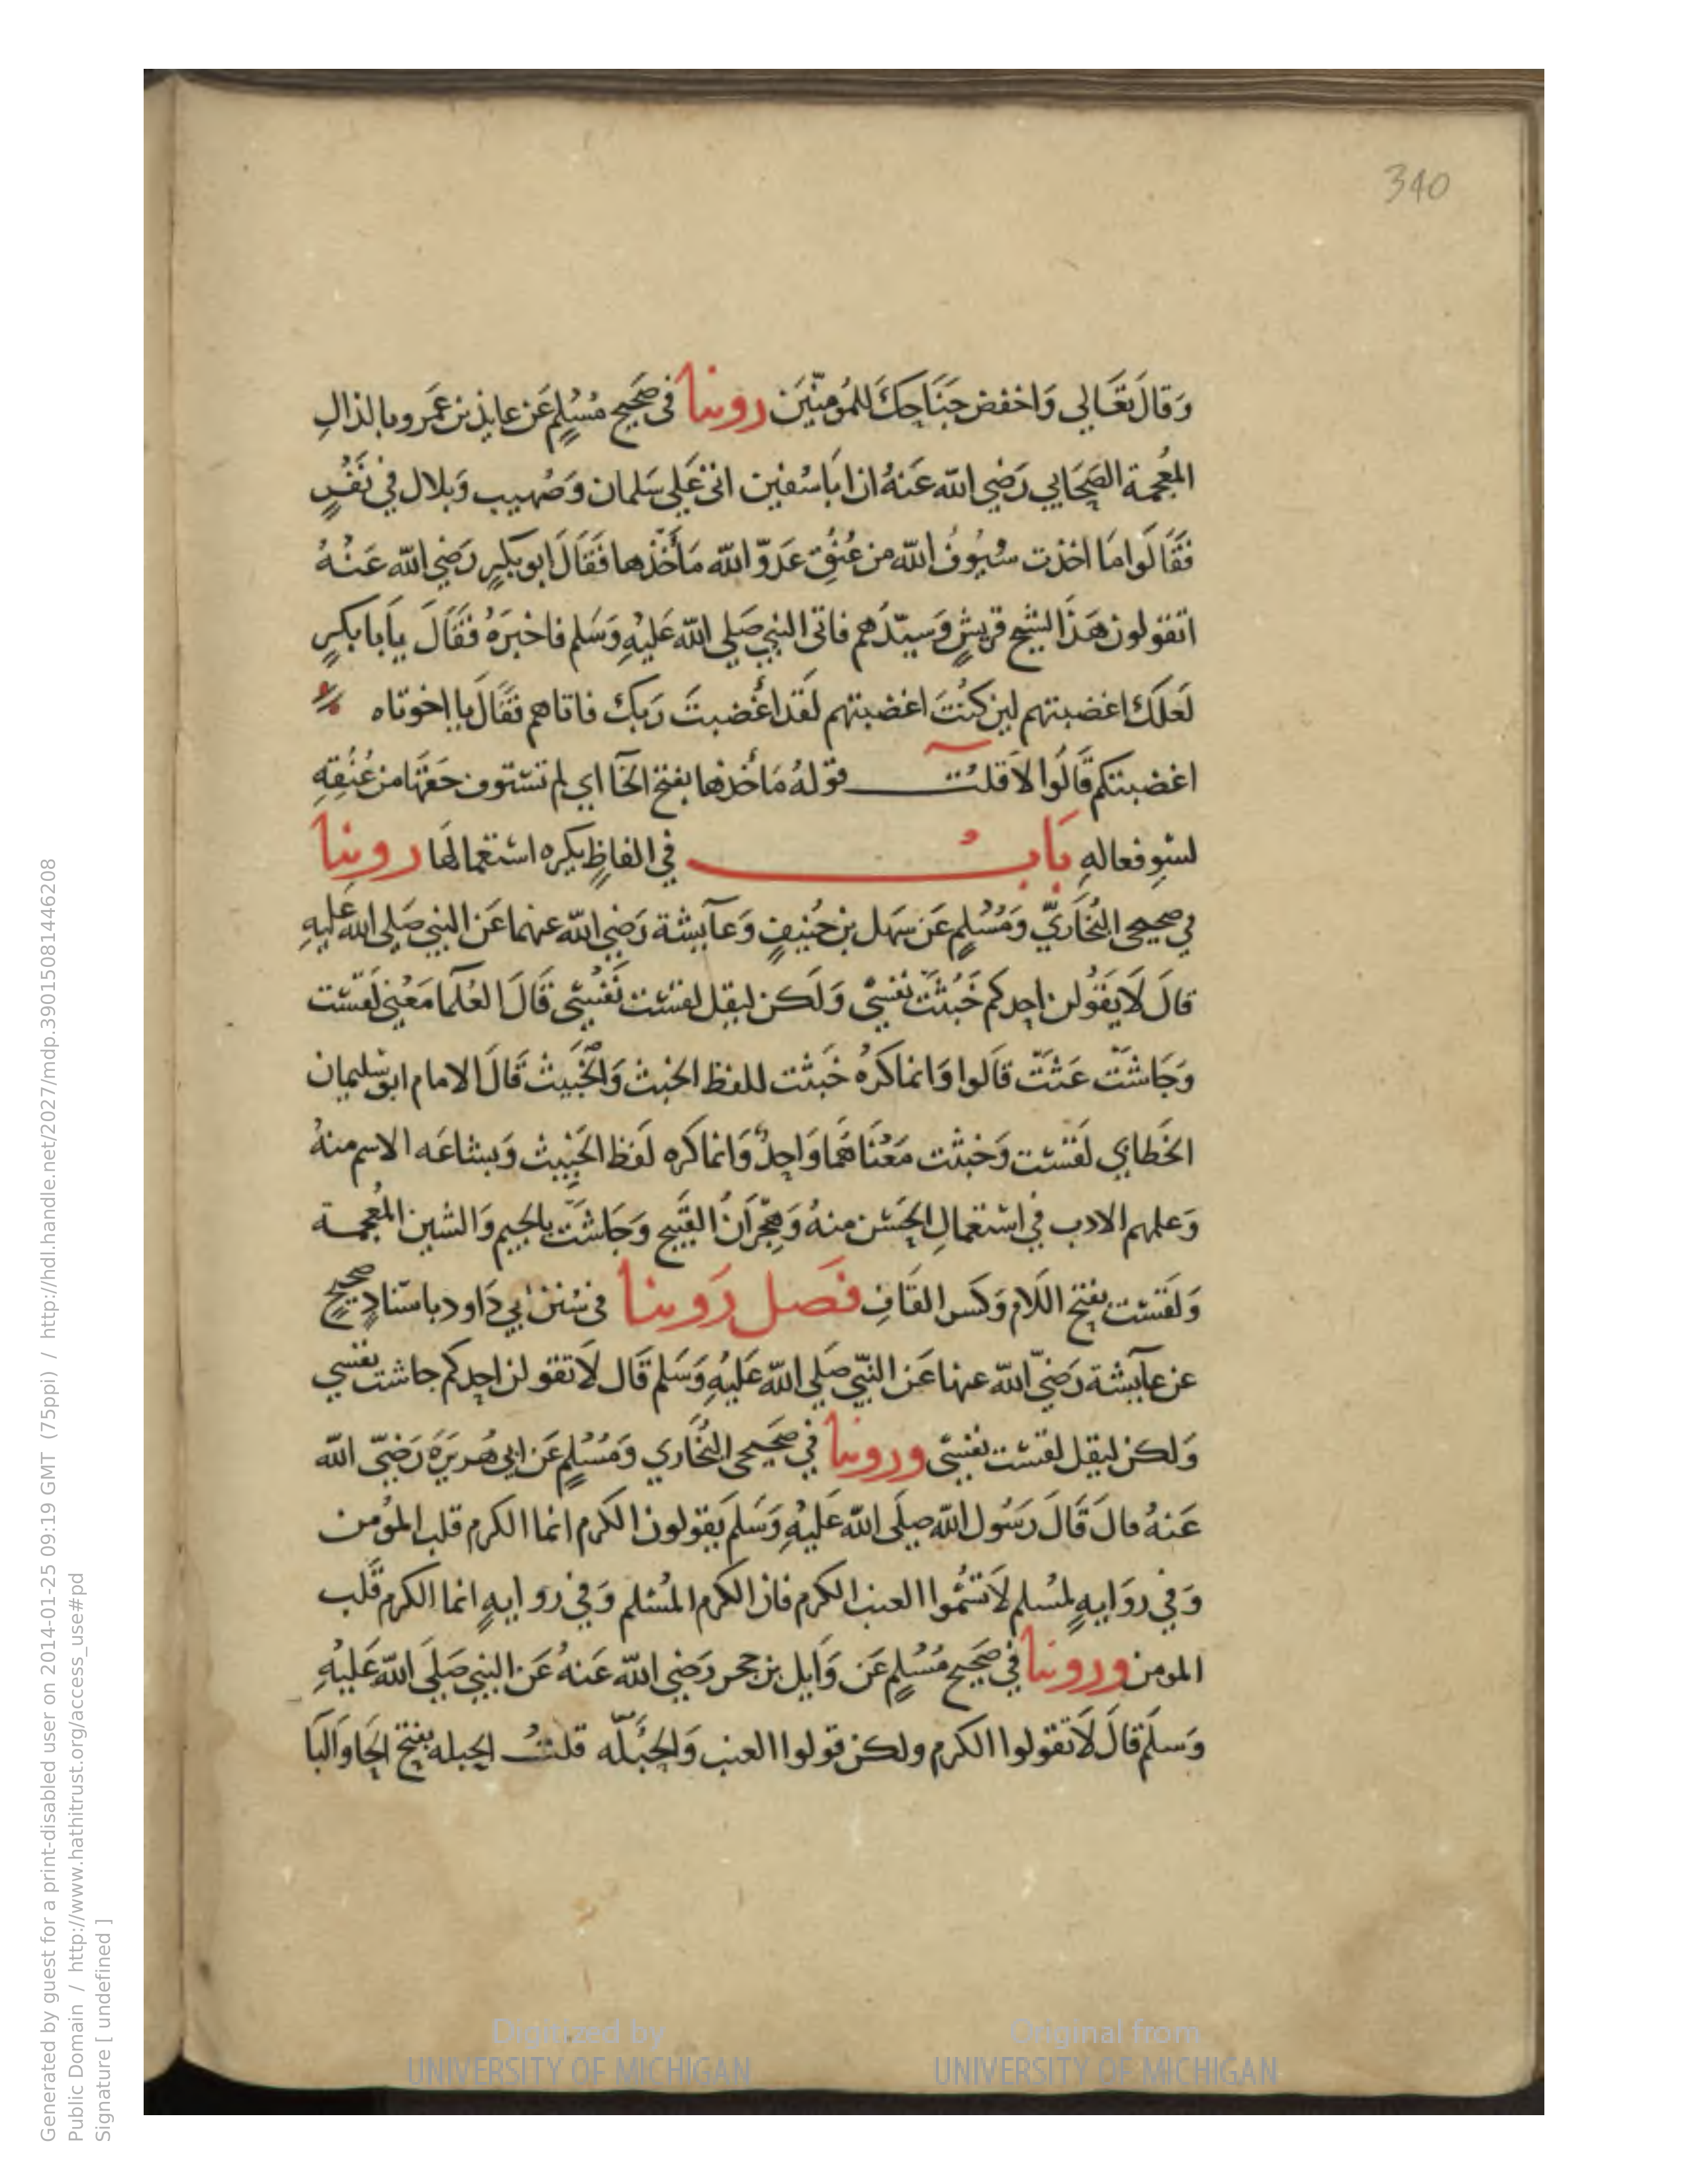 340
وَقالَ تعَالي وَاخفض جَنَاحَكَ للمُومنّيَن روينا في صَحَيح مُسُلمٍ عَن عايذ بن عَمَرو بالذالِ
المُعجمة الصَحَابي رَضي الله عَنهُ ان ابَا سُفين اتي عَلَي سَلمان وَصُهيب وَبلال في نَفَرٍ
فقَالوا مَا اخذت سُيوفُ الله من عُنُقِ عَدوّ الله مَأخَذَها فَقَالَ ابو بَكرٍ رَضي الله عَنهُ
اتقولون هَذا لشيخ قريشٍ وَسيّدهم فاتي النبي صَلي الله عَليهِ وَسَلم فاخبَرَهُ فقَالَ يأبا بكرٍ
لَعلكَ اغضبتهم لين كنُتَ اغضبتهم لَقَد اغُضبتَ رَبكَ فاتاهم فقَالَ يا اخوتاه
اغضبتكم قَالوُا لا قلتُ قولهُ مَأخذها بفتح الخَآ اي لم تستوف حَقهَا من عُنُقِهِ
لسوِ فعالهِ بَابُ في الفاظٍ يكره استعمالهَا روينا
في صحيحي البُخاَريّ وَمُسُلمٍ عَن سَهل بن حُنيفٍ وَعآيشة رَضي الله عنهما عَن النبي صَلي الله عَليهِ
قالَ لَا يقَوُلن احدكم خَبُثَت نفسيْ وَلَكن ليقل لقسَت نَفُسي قَالَ العُلَمآ مَعُني لَقسَت
وَجَاشَت غَثَت قَالوا وَانما كَرُه خَبثت للفظ الخبث وَالخَبيث قَالَ الامام ابو سُليمان
الخَطابي لَقَست وَخبثت مَعُنَاهُمَا وَاحدٌ وَانما كره لَفظ الخَبيث وَبشاعَه الاسم منهُ
وَعلمهم الادب في استعمالِ الحَسَن منهُ وَهجَرانُ القَبيح وَجَاشَت بالجيم وَالشين المُعجمة
وَلَقست بفتح اللَام وَكسر القَافِ فَصَل رَوينا في سُنَن ابي دَاود باسنادٍ صَحيحٍ
عن عآيشة رَضي الله عنها عَن النبّي صَلي الله عَليهِ وَسَلم قَال لَا تقولن احدكم جاشت نفسي
وَلكن ليقل لقست نفسي وروينا في صَحَيحي البُخاَري وَمُسُلمٍ عَن ابي هُريرَةَ رَضي الله
عَنهُ قالَ قَالَ رَسُول الله صلَي الله عَليهِ وَسَلم يقولون الكرم انما الكرم قلب المؤمن
وَفي روَايهٍ لمسُلمٍ لَا تسُمُوا العنب الكرم فان الكرم المُسُلم وَفي روايهٍ انما الكرم قَلب
المومن وروينا في صَحَيح مُسُلمٍ عَن وَايل بن حجر رَضي الله عَنهُ عَن النبي صَلَي الله عَليهِ
وَسلَم قالَ لَا تقولوا الكرم ولكن قولوا العنب وَالحَبَلَه قلتُ الحبله بفتح الحَا وَالبَا
Generated by guest for a print-disabled user on 2014-01-25 09:19 GMT (75ppi) / http://hdl.handle.net/2027/mdp.39015081446208
Public Domain / http://www.hathitrust.org/access_use#pd
Signature [ undefined ]
Digitized by
UNIVERSITY OF MICHIGAN
Original from
UNIVERSITY OF MICHIGAN